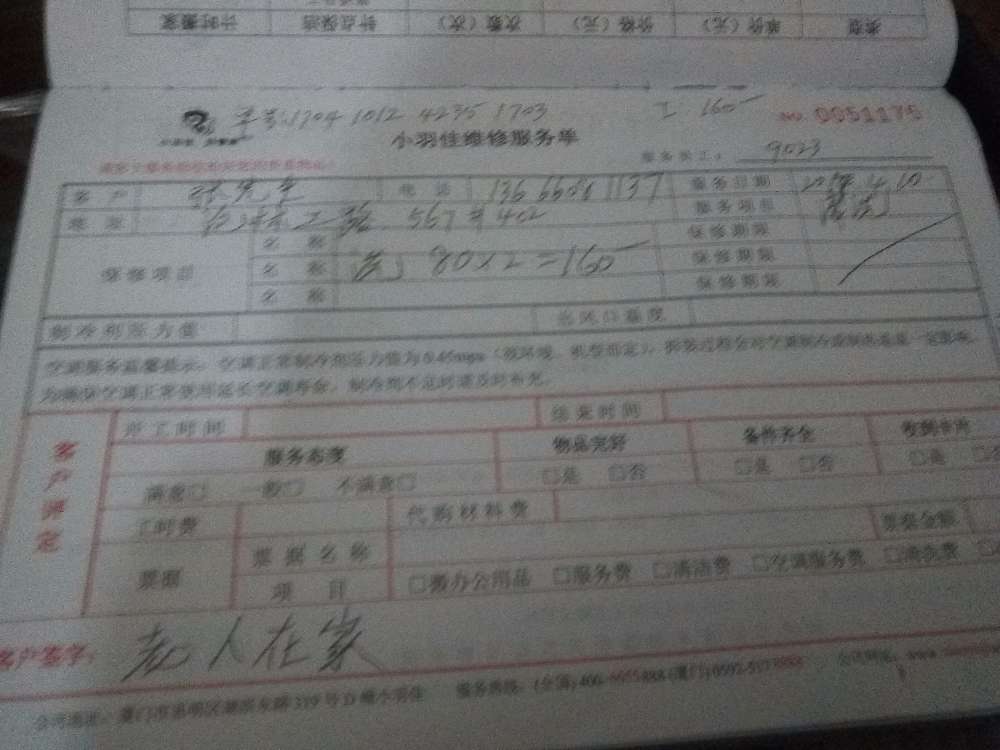 计时搬家 钟点保洁 次数（次） 价格（元） 单价（元） 类型
1704 1012 4235 1703 160 NO. 0051175
小羽佳维修服务单
服务员工： 9023
客户 张先生 电话 服务日期
地址 567#402 服务项目 清洗
保修项目 名称 保修期限
名称 清洗 80×2=160 保修期限
名称 保修期限
制冷剂压力值 出风口温度
空调服务温馨提示：空调正常制冷剂压力值为0.45mpa（视环境、机型而定），拆装过程会对空调制冷或制热造成一定影响，
为确保空调正常使用延长空调寿命，制冷剂不足时请及时补充。
客户评定
开工时间 结束时间
服务态度 物品完好 备件齐全 收到卡片
满意□ 一般□ 不满意□ □是 □否 □是 □否 □是
工时费 代购材料费
票据 票据名称 票据金额
项目 □搬办公用品 □服务费 □清洁费 □空调服务费 □清洗费
客户签字： 老人在家
公司地址：厦门市思明区 319号D 小羽佳 服务热线：(全国)400-6055888 (厦门)0592-